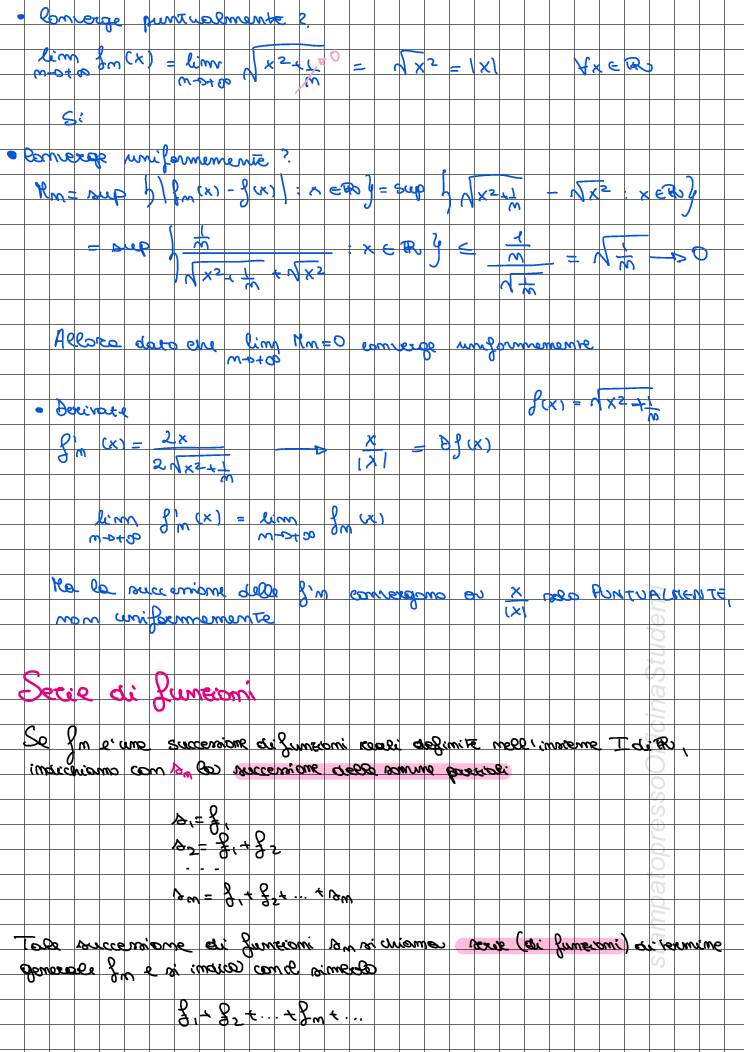 • Converge puntualmente?
lim n→+∞ fn(x) = lim n→+∞ √(x² + 1/n) = √x² = |x| ∀x∈ℝ
0
Sì
• Converge uniformemente?
Mn = sup {|fn(x) - f(x)| : x∈ℝ} = sup {√(x² + 1/n) - √x² : x∈ℝ}
= sup {(1/n)/(√(x² + 1/n) + √x²) : x∈ℝ} ≤ (1/n)/√(1/n) = √(1/n) → 0
Allora dato che lim n→+∞ Mn = 0 converge uniformemente
f(x) = √(x² + 1/n)
• Derivate
f'n (x) = 2x/(2√(x² + 1/n)) → x/|x| = Df(x)
lim n→+∞ f'n (x) = lim n→+∞ fn (x)
Ma la successione delle f'n convergono a x/|x| solo PUNTUALMENTE,
non uniformemente
Serie di funzioni
Se fn è una successione di funzioni reali definite nell'insieme I di ℝ,
indichiamo con sn la successione delle somme parziali
s₁ = f₁
s₂ = f₁ + f₂
...
sn = f₁ + f₂ + ... + sn
Tale successione di funzioni sn si chiama serie (di funzioni) di termine
generale fn e si indica con il simbolo
f₁ + f₂ + ... + fn + ...
stampatopressoOfficinaStudenti